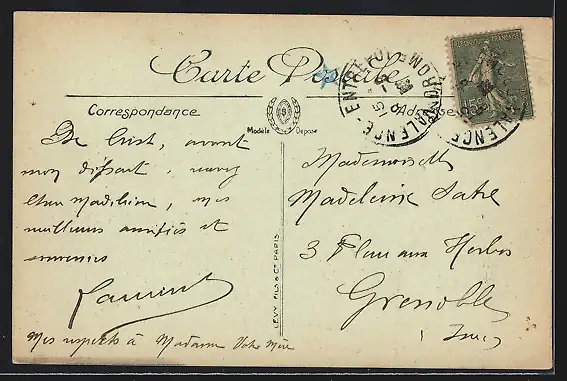 Carte Postale
Correspondance
Adresse
Modèle Déposé
De Crest, avant
mon départ, recevez
chère Madeleine, mes
meilleures amitiés et
souvenirs
Laurent
Mes respects à Madame Votre Mère
Mademoiselle
Madeleine
3 Place aux Herbes
Grenoble
(Isère)
LEVY FILS & Cie PARIS
REPUBLIQUE FRANÇAISE
15c
VALENCE
DROME